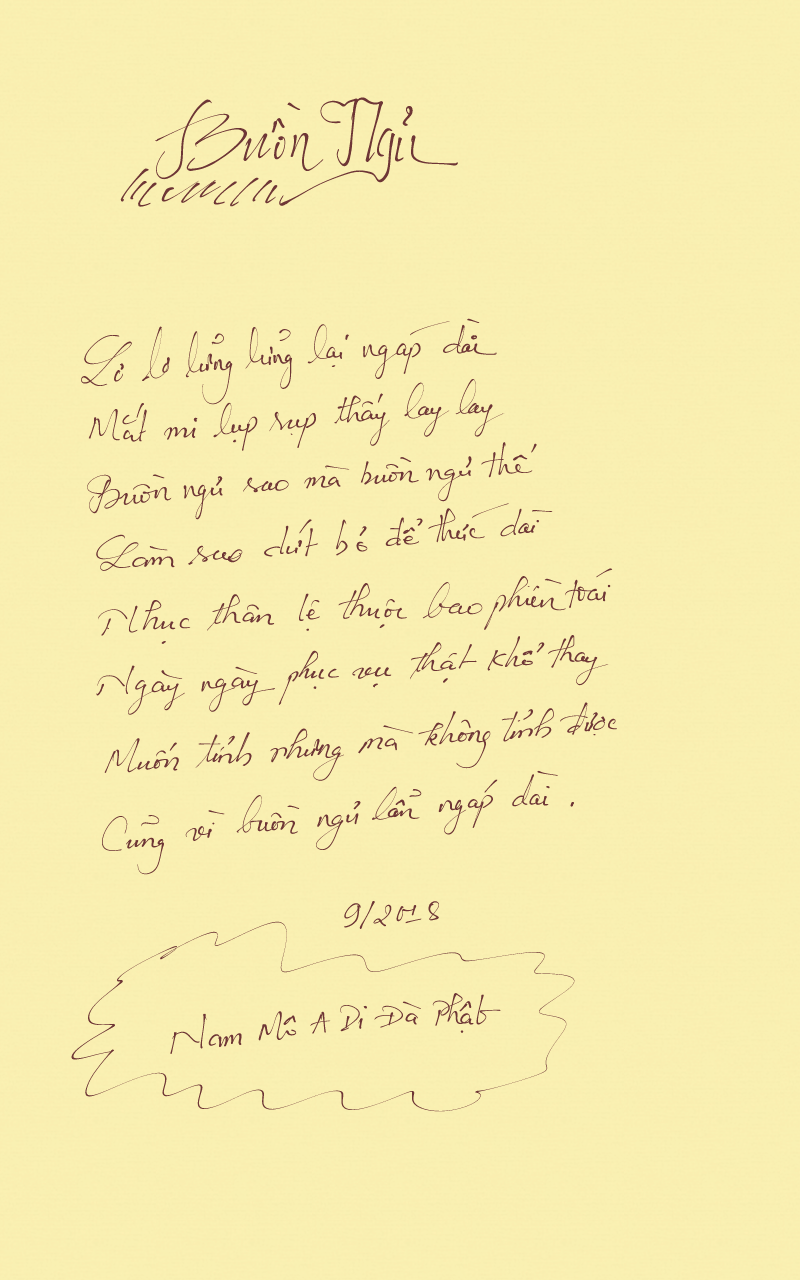 Buồn Ngủ
Lơ lơ lửng lửng lại ngáp dài
Mắt mi lụp sụp thấy lay lay
Buồn ngủ sao mà buồn ngủ thế
Làm sao dứt bỏ để thức dài
Nhục thân lệ thuộc bao phiền toái
Ngày ngày phục vụ thật khổ thay
Muốn tỉnh nhưng mà không tỉnh được
Cũng vì buồn ngủ lẫn ngáp dài.
9/2018
Nam Mô A Di Đà Phật